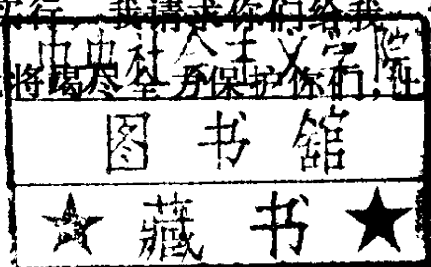 行。我请求你们给我
中央社会主义学院
将竭尽全力保护你们,
图书舘
★藏书★